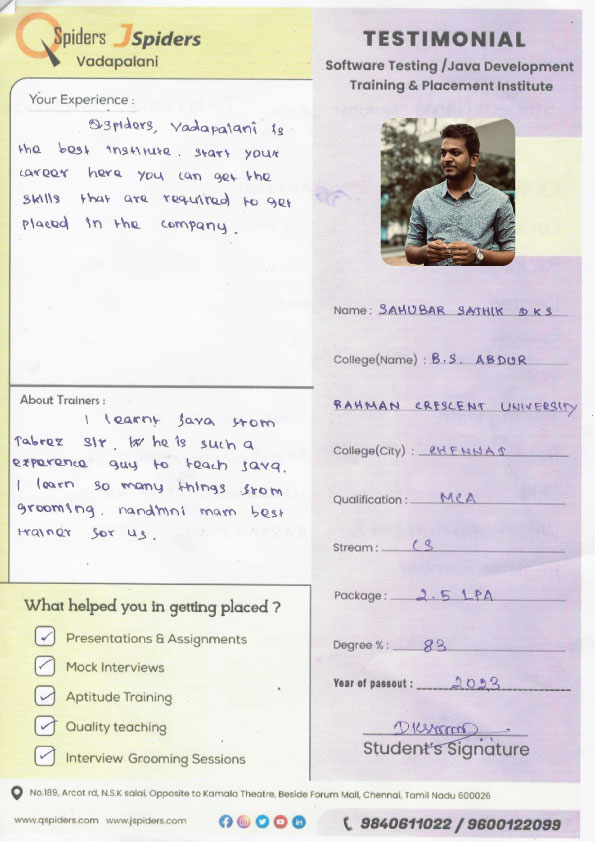 QSpiders JSpiders
Vadapalani
Your Experience :
Qspiders, Vadapalani is
the best institute. start your
career here you can get the
skills that are required to get
placed in the company.
About Trainers :
I learnt Java from
Tabrez sir. he is such a
experence guy to teach Java.
I learn so many things from
grooming. nandhni mam best
trainer for us.
What helped you in getting placed ?
✓ Presentations & Assignments
✓ Mock Interviews
✓ Aptitude Training
✓ Quality teaching
✓ Interview Grooming Sessions
TESTIMONIAL
Software Testing /Java Development
Training & Placement Institute
Name : SAHUBAR SATHIK D K S
College(Name) : B.S. ABDUR
RAHMAN CRESCENT UNIVERSITY
College(City) : CHENNAI
Qualification : MCA
Stream : CS
Package : 2.5 LPA
Degree % : 83
Year of passout : 2023
Student's Signature
No.189, Arcot rd, N.S.K salai, Opposite to Kamala Theatre, Beside Forum Mall, Chennai, Tamil Nadu 600026
www.qspiders.com www.jspiders.com
9840611022 / 9600122099